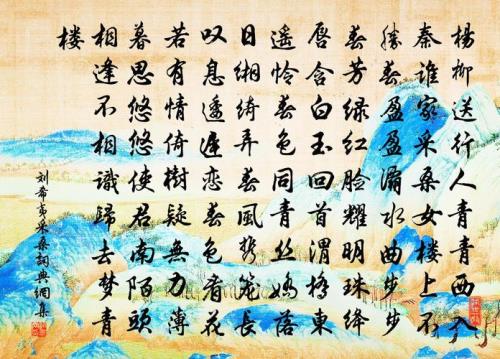 楊柳送行人青青西入
秦誰家采桑女楼上不
勝春盈盈灞水曲步步
春芳绿红脸耀明珠绛
唇含白玉回首渭橋東
遥怜春色同青丝嬌落
日缃绮弄春風携笼長
叹息逶遲恋春色看花
若有情倚樹疑無力薄
暮思悠悠使君南陌頭
相逢不相識歸去梦青
楼
刘希夷采桑詞典網集